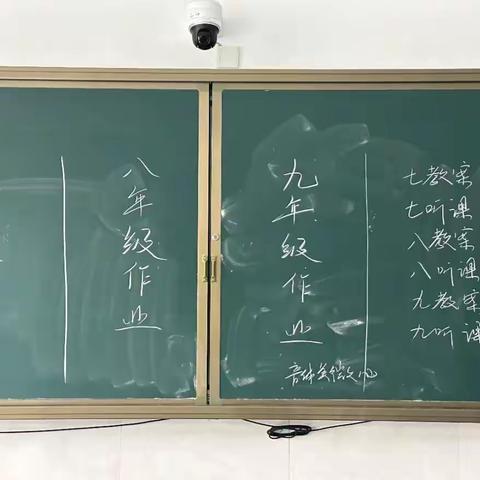 八年级作业
九年级作业
七教案
七听课
八教案
八听课
九教案
九听课